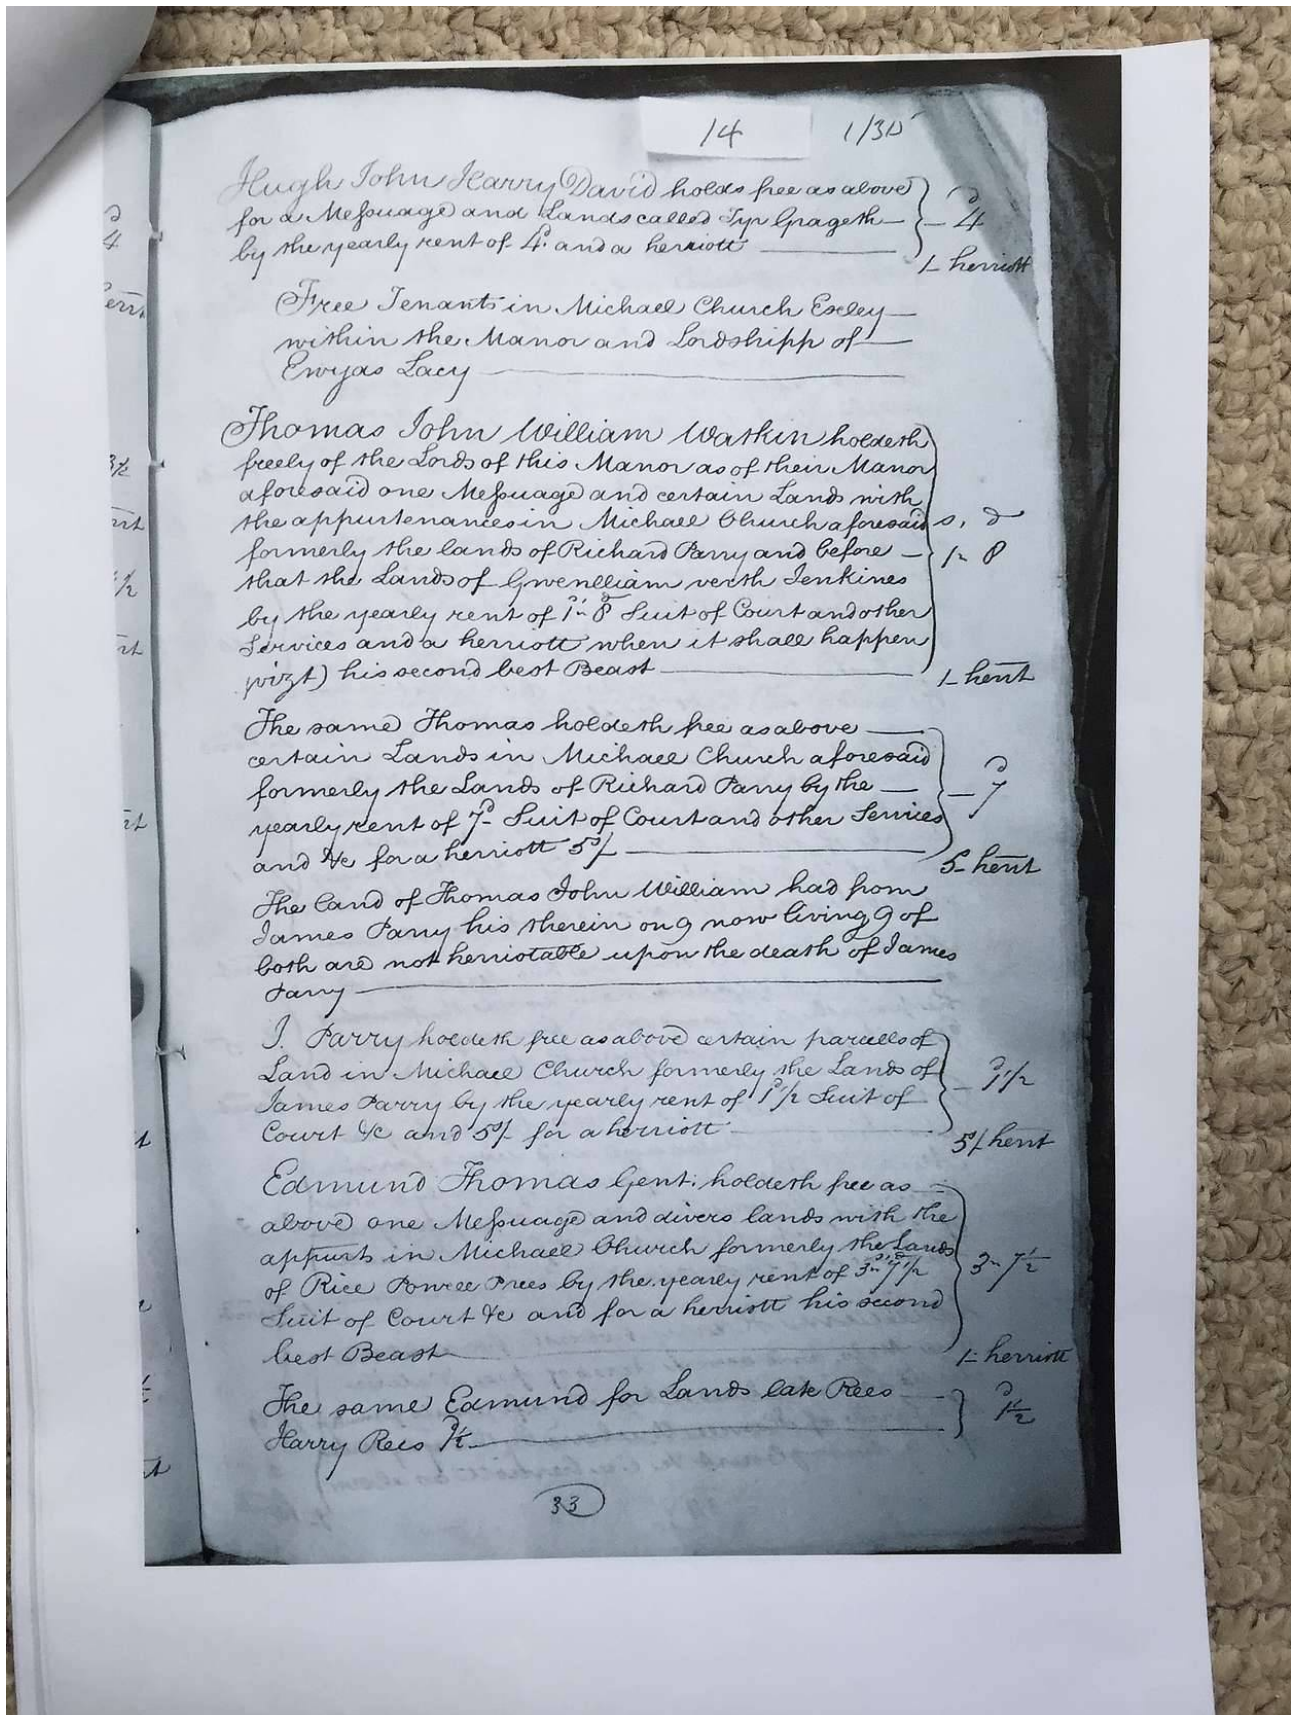 14 1/315
Hugh John Harry David holds free as above
for a Messuage and Lands called Tyr Grageth
by the yearly rent of 4d. and a herriott
d
4
1 herriott
Free Tenants in Michael Church Exley
within the Manor and Lordshipp of
Ewyas Lacy
Thomas John William Watkin holdeth
freely of the Lords of this Manor as of their Manor
aforesaid one Messuage and certain Lands with
the appurtenances in Michael Church aforesaid
formerly the lands of Richard Parry and before
that the Lands of Gwenlliam verth Jenkines
by the yearly rent of 1s 8d Suit of Court and other
Services and a herriott when it shall happen
vizt) his second best Beast
s, d
1 8
1 hert
The same Thomas holdeth free as above
certain Lands in Michael Church aforesaid
formerly the Lands of Richard Parry by the
yearly rent of 7d Suit of Court and other Services
and &c for a herriott 5/
d
7
5 hert
The land of Thomas John William had from
James Parry his therein on 9 now living 9 of
both are not herriotable upon the death of James
Parry
J. Parry holdeth free as above certain parcells of
Land in Michael Church formerly the Lands of
James Parry by the yearly rent of 1d 1/2 Suit of
Court &c and 5/ for a herriott
d
1 1/2
5/ hert
Edmund Thomas Gent: holdeth free as
above one Messuage and divers lands with the
appurts in Michael Church formerly the Lands
of Rice Powell Prees by the yearly rent of 3s 7d 1/2
Suit of Court &c and for a herriott his second
best Beast
3 7 1/2
1 herriott
The same Edmund for Lands late Rees
Harry Rees 1d 1/2
d
1 1/2
33